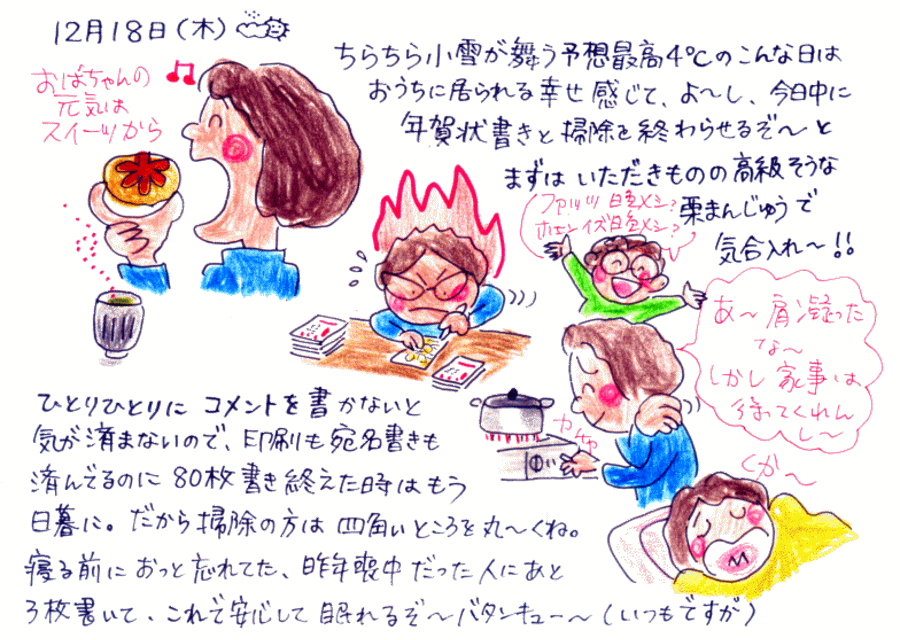 12月18日(木)
おばちゃんの
元気は
スイーツから
ちらちら小雪が舞う予想最高4℃のこんな日は
おうちに居られる幸せ感じて、よ〜し、今日中に
年賀状書きと掃除を終わらせるぞ〜と
まずはいただきものの高級そうな
栗まんじゅうで
気合入れ〜!!
ファッツ 日色メシ?
ホエンイズ日色メシ?
あ〜肩凝った
な〜
しかし家事は
待ってくれん
し〜
カチャ
くか〜
ひとりひとりにコメントを書かないと
気が済まないので、印刷も宛名書きも
済んでるのに80枚書き終えた時はもう
日暮に。だから掃除の方は四角いところを丸〜くね。
寝る前におっと忘れてた、昨年喪中だった人にあと
3枚書いて、これで安心して眠れるぞ〜バタンキュー〜(いつもですが)